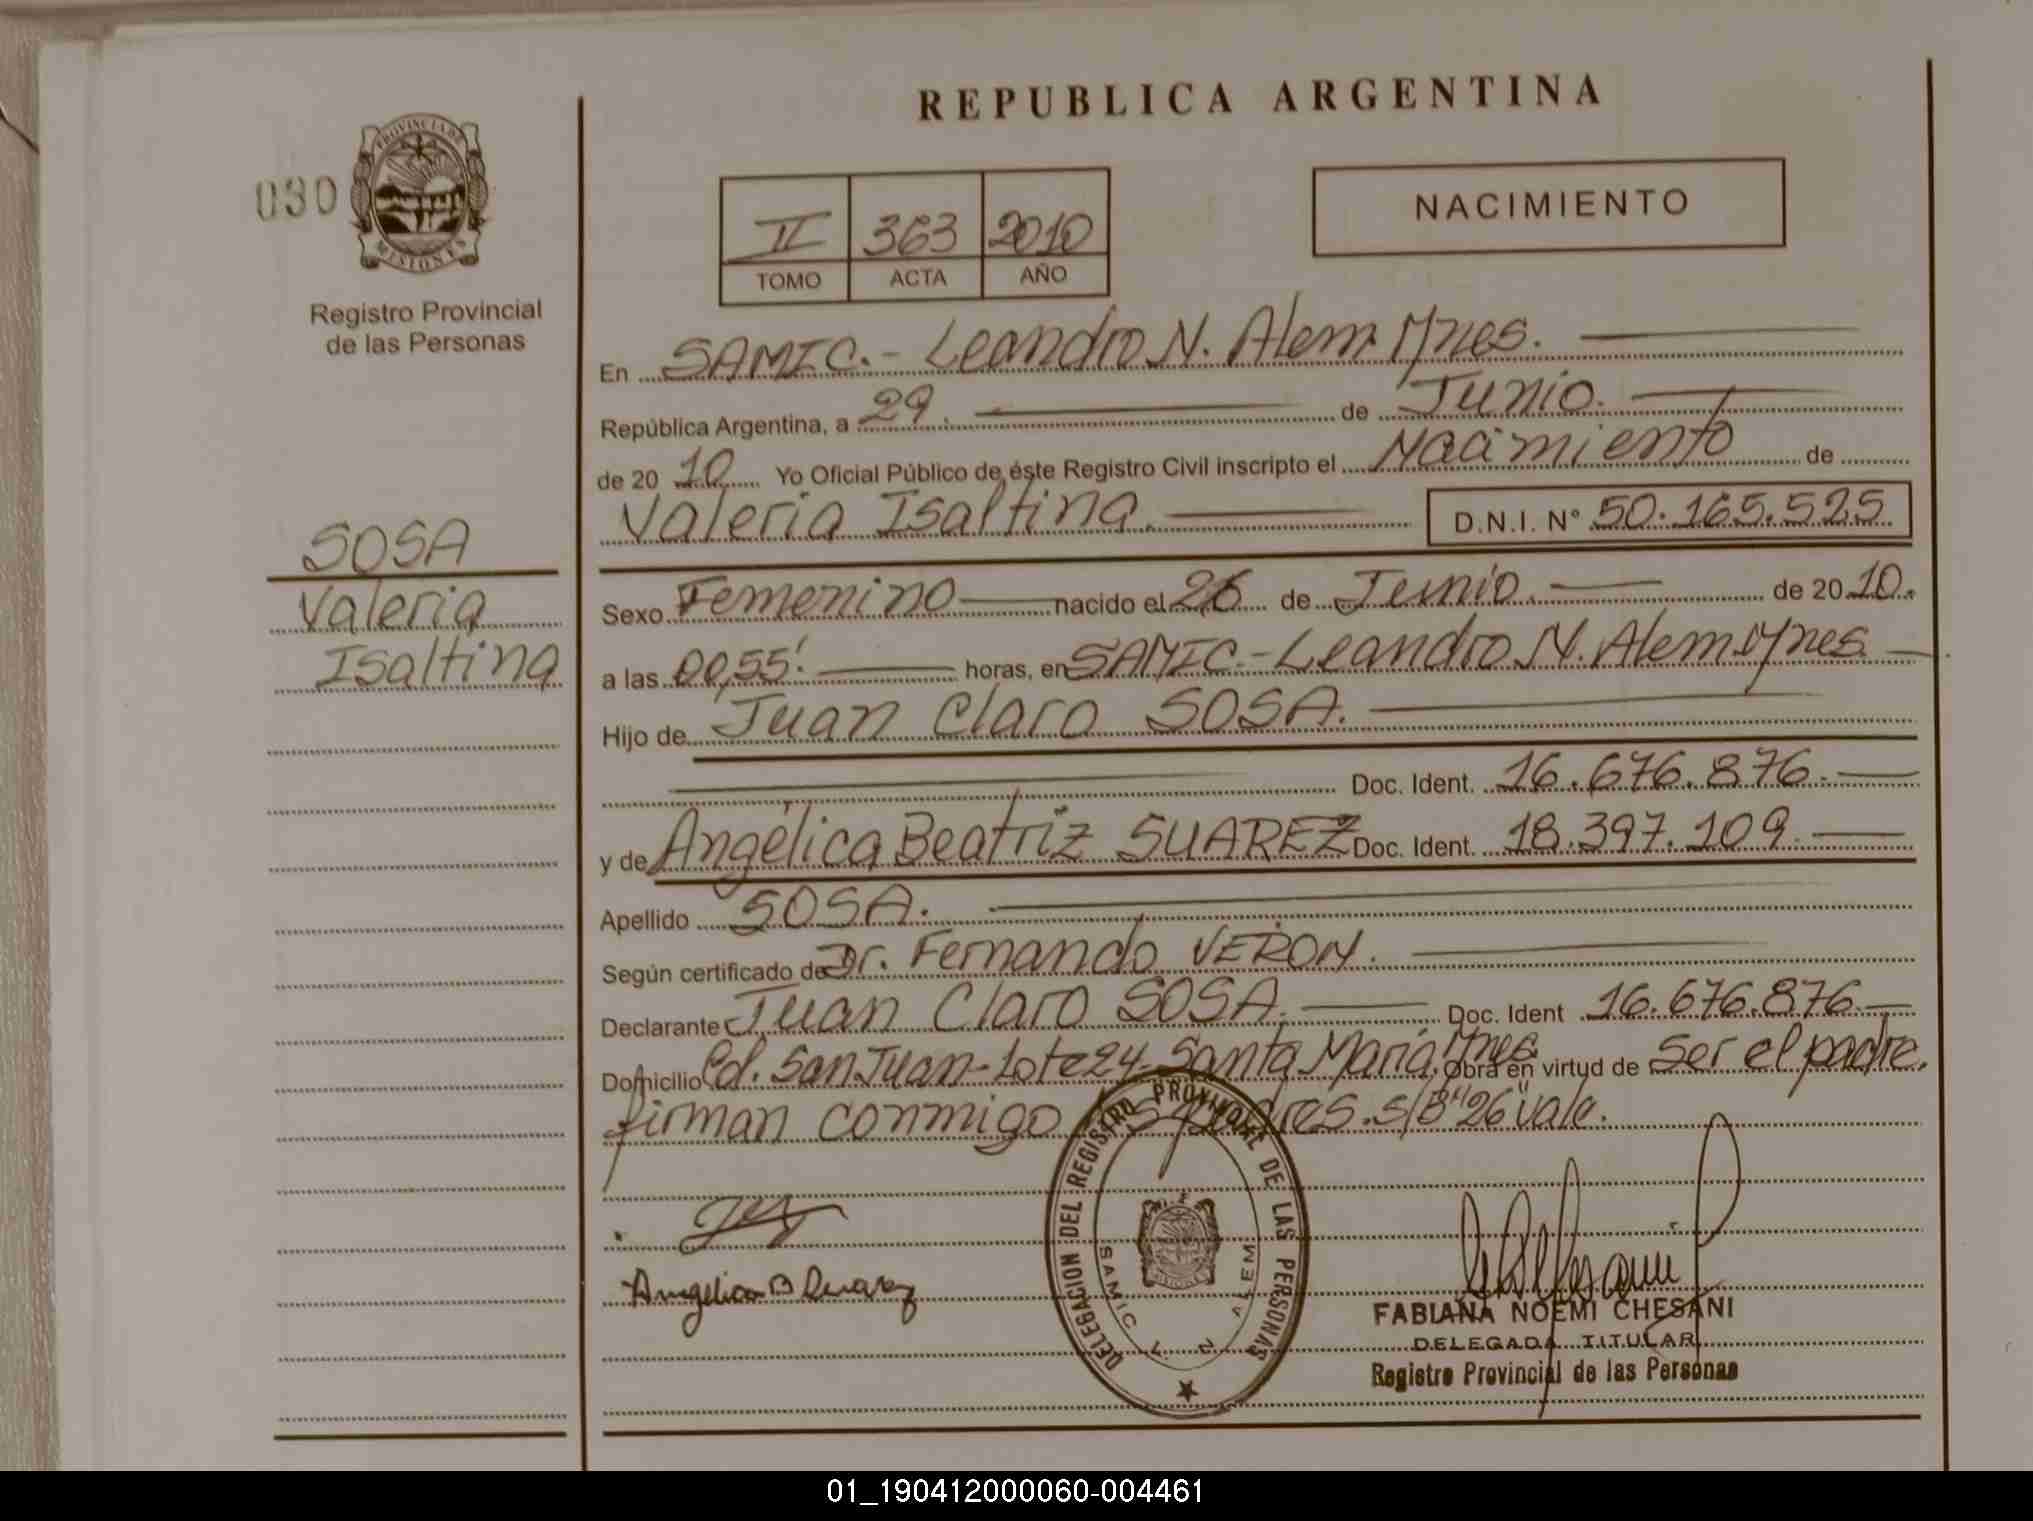 REPUBLICA ARGENTINA
030
PROVINCIA DE MISIONES
Registro Provincial
de las Personas
II 363 2010
TOMO ACTA AÑO
NACIMIENTO
En SAMIC.- Leandro N. Alem. Mnes.
República Argentina, a 29. de Junio.
de 20 10 Yo Oficial Público de éste Registro Civil inscripto el Nacimiento de
Valeria Isaltina. D.N.I. N° 50.165.525
SOSA
Valeria
Isaltina
Sexo Femenino nacido el 26 de Junio. de 20 10.
a las 00,55'. horas, en SAMIC.- Leandro N. Alem. Mnes.
Hijo de Juan Claro SOSA.
Doc. Ident. 16.676.876.
y de Angélica Beatriz SUAREZ Doc. Ident. 18.397.109.
Apellido SOSA.
Según certificado de Dr. Fernando VERON.
Declarante Juan Claro SOSA. Doc. Ident 16.676.876.
Domicilio Col. San Juan-Lote 24-Santa María, Mnes. Obra en virtud de Ser el padre,
firman conmigo los padres. s/B "26" vale.
Angelica B Suarez
DELEGACION DEL REGISTRO PROVINCIAL DE LAS PERSONAS
SAMIC L. N. ALEM
FABIANA NOEMI CHESANI
DELEGADA TITULAR
Registro Provincial de las Personas
01_190412000060-004461